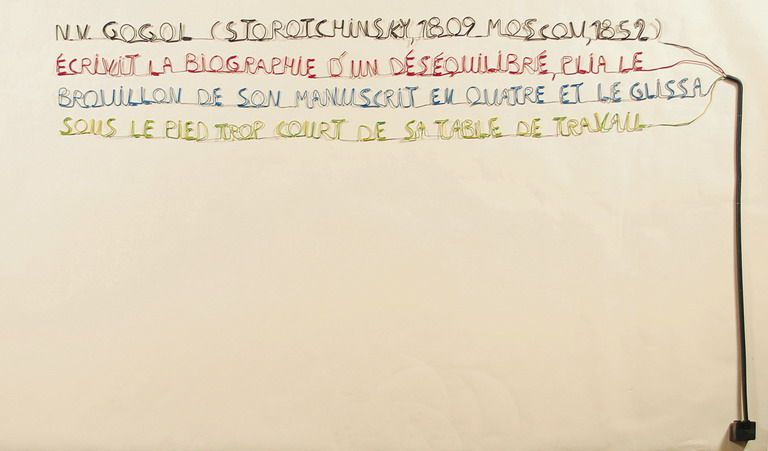 N.V. GOGOL (STOROTCHINSKY, 1809 MOSCOU, 1852)
ÉCRIVIT LA BIOGRAPHIE D'UN DÉSÉQUILIBRÉ, PLIA LE
BROUILLON DE SON MANUSCRIT EN QUATRE ET LE GLISSA
SOUS LE PIED TROP COURT DE SA TABLE DE TRAVAIL